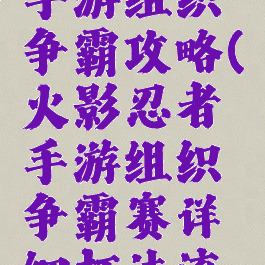 手游组织
争霸攻略(
火影忍者
手游组织
争霸赛详
细打法流